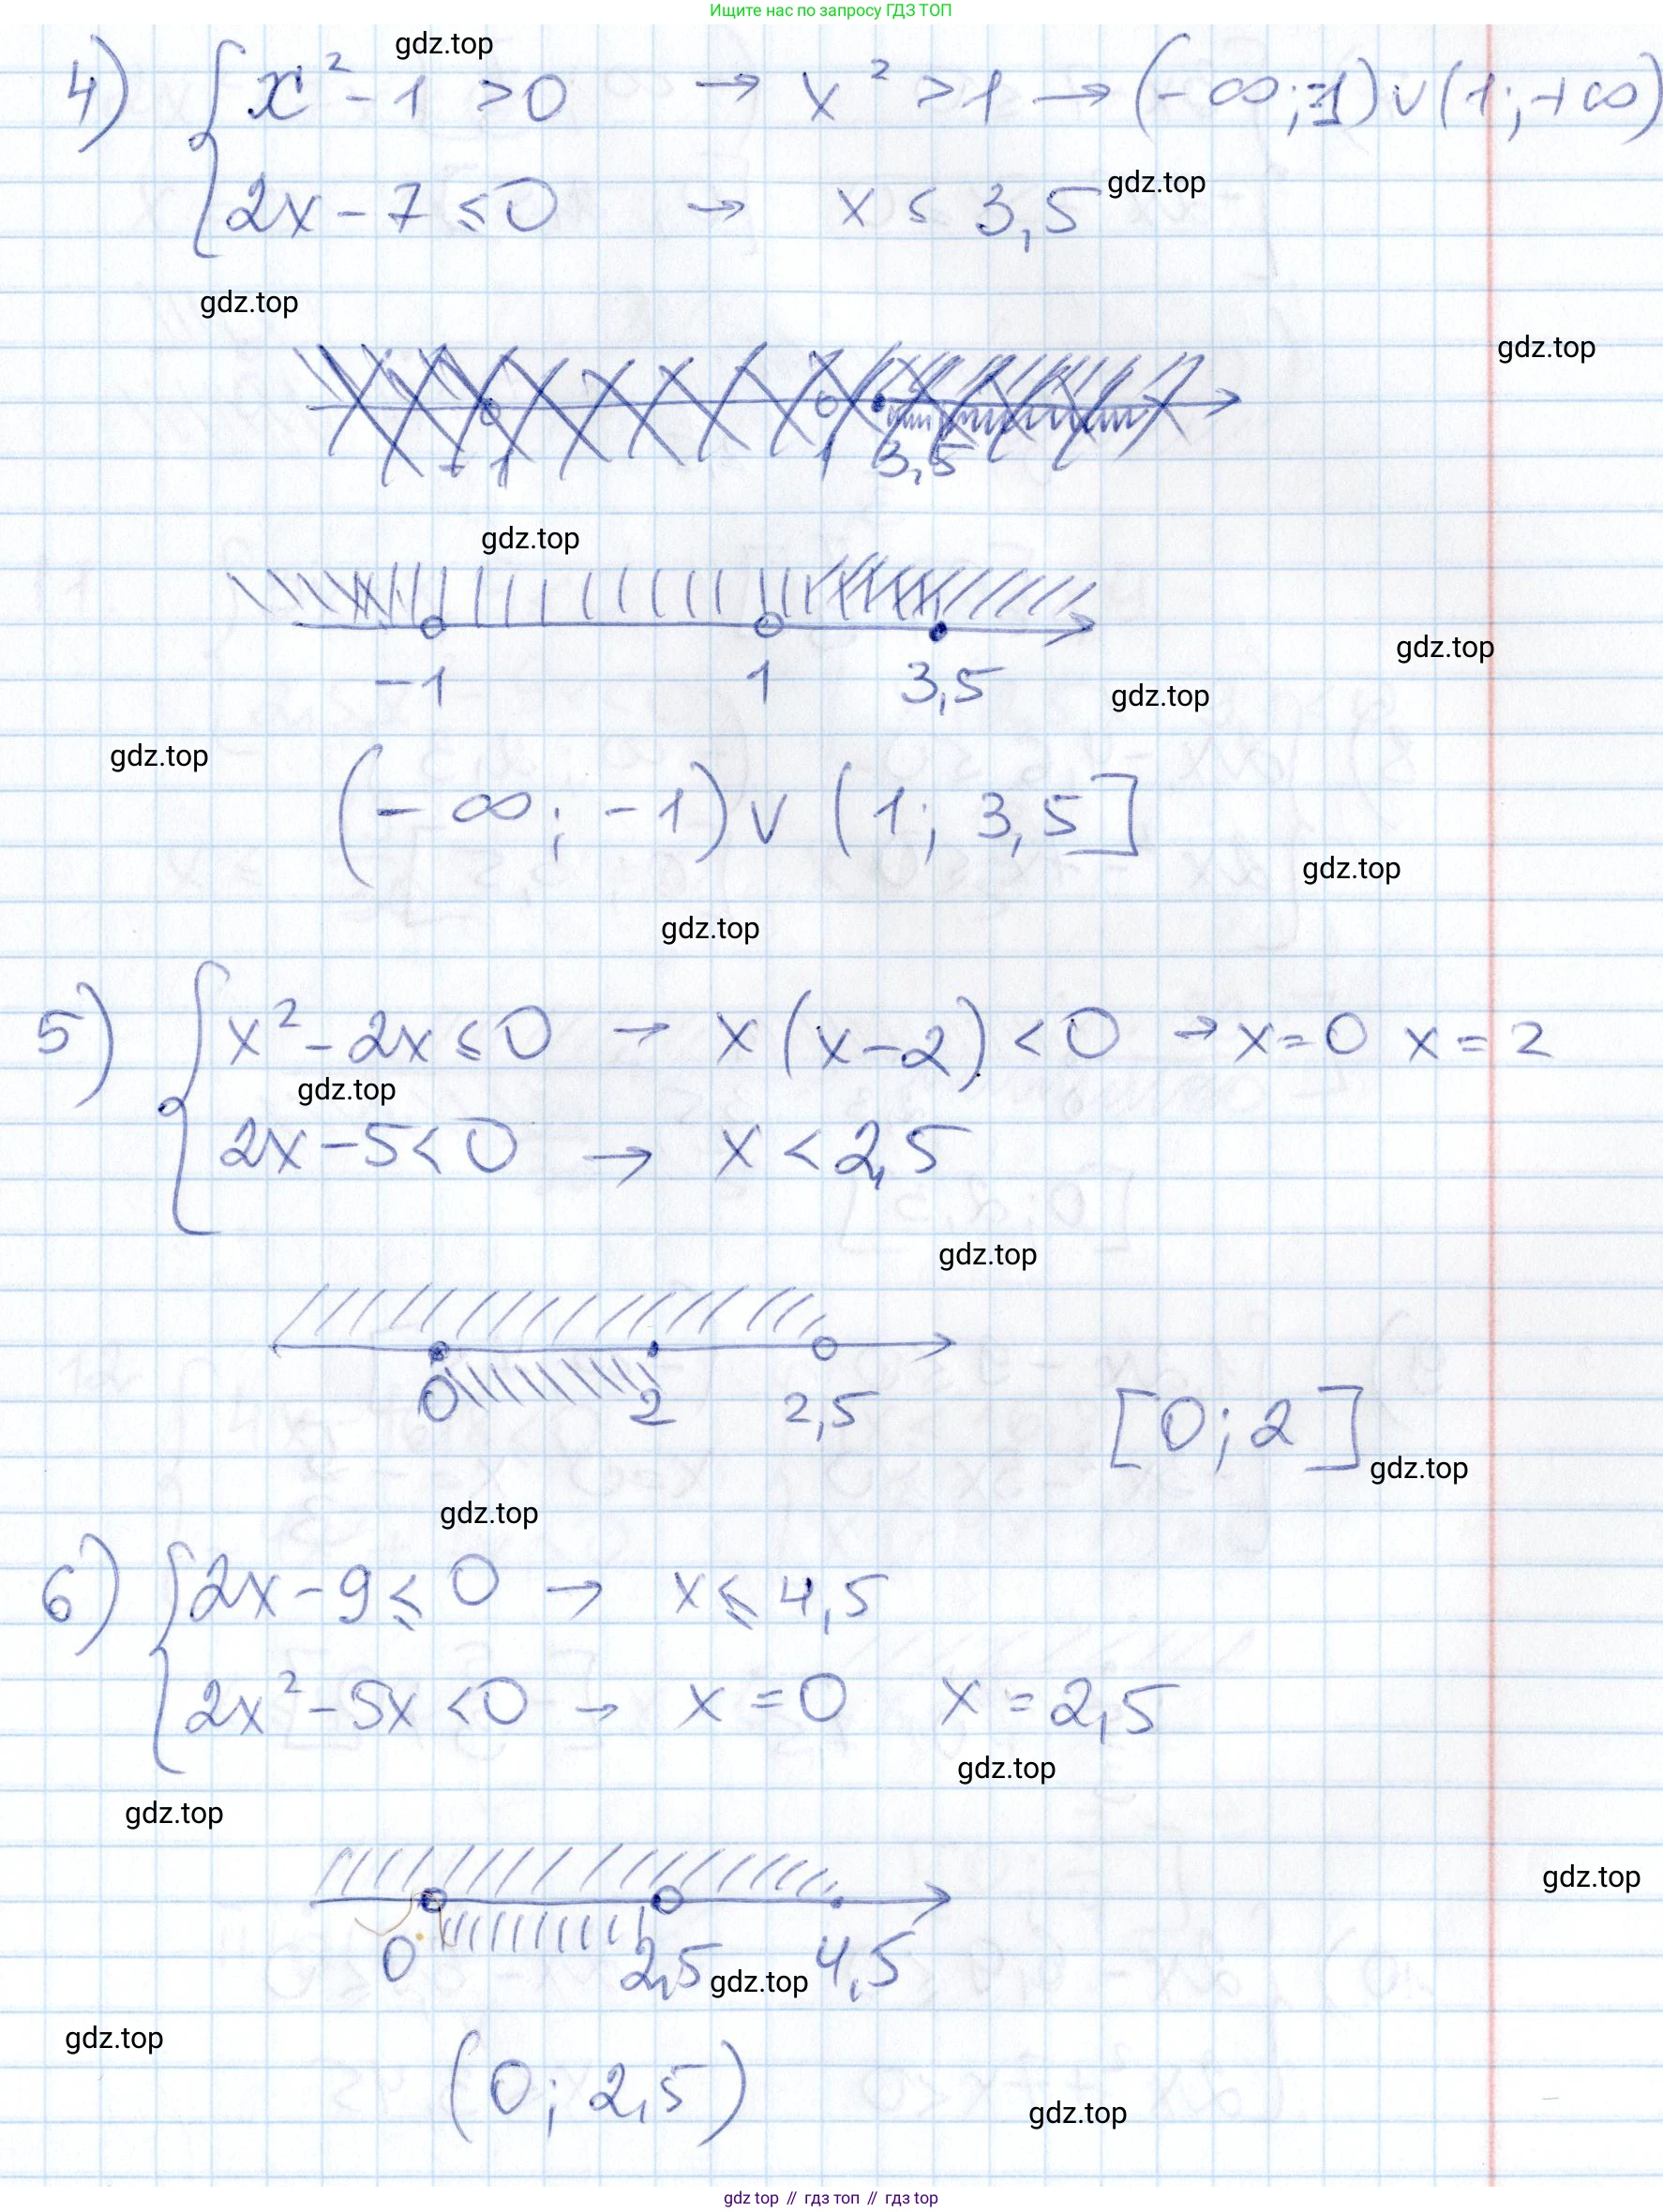 Ищите нас по запросу ГДЗ ТОП
gdz.top
4) { x² - 1 > 0 → x² > 1 → (-∞; -1) ∨ (1; +∞)
2x - 7 ≤ 0 → x ≤ 3,5 gdz.top
gdz.top
gdz.top
-1 1 3,5
gdz.top
gdz.top
-1 1 3,5
gdz.top
gdz.top
(-∞; -1) ∨ (1; 3,5]
gdz.top
gdz.top
5) { x² - 2x ≤ 0 → x(x-2) < 0 → x=0 x=2
gdz.top
2x - 5 < 0 → x < 2,5
gdz.top
0 2 2,5
[0; 2]
gdz.top
gdz.top
6) { 2x - 9 ≤ 0 → x ≤ 4,5
2x² - 5x < 0 → x = 0 x = 2,5
gdz.top
gdz.top
gdz.top
0 2,5 gdz.top 4,5
gdz.top
(0; 2,5)
gdz.top
gdz top // гдз топ // gdz_top